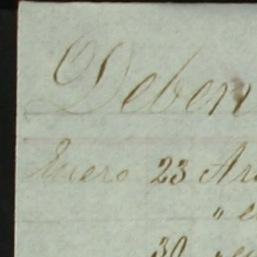 Deben
Enero 23 Ar
" e
30